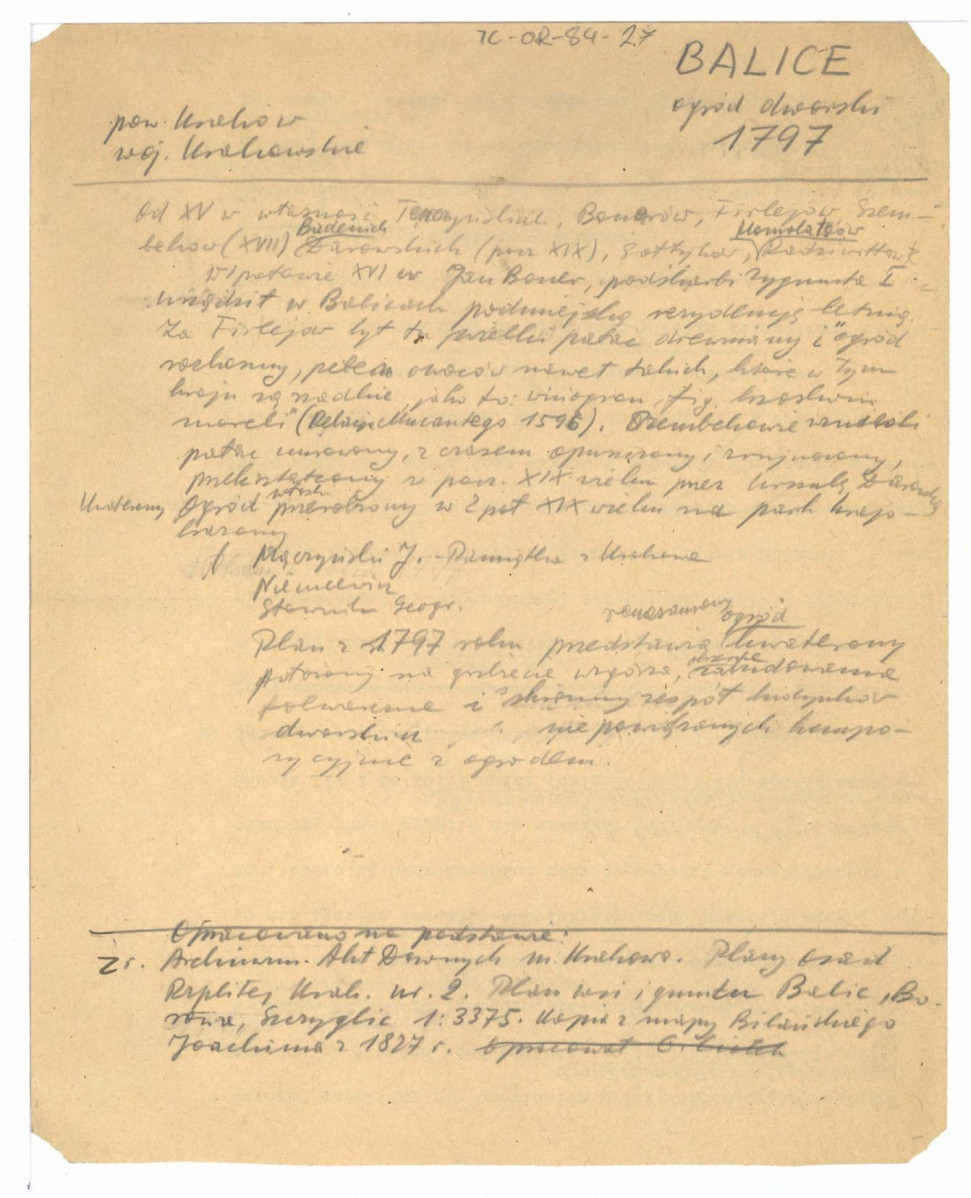 TC-OR-84-27
BALICE
ogród dworski
1797
pow. Kraków
woj. Krakowskie
Od XV w własność Tenczyńskich, Bonerów, Firlejów, Szem-
Badenich Homolatsów
beków (XVII) Darowskich (pocz XIX), Sołtyków, Radziwiłłów
w I połowie XVI w Jan Boner, podskarbi Zygmunta I
urządził w Balicach podmiejską rezydencję letnią.
Za Firlejów był tu wielki pałac drewniany i "ogród
rozkoszny, pełen owoców nawet takich, które w tym
kraju są rzadkie, jako to: winogron, fig, brzoskwiń
moreli" (Relacja Mucantego 1596). Szembekowie
pałac murowany, z czasem opuszczony i zrujnowany,
przekształcony w pocz. XIX wieku przez Urszulę Darowską
Kwaterowy Ogród włoski przerobiony w 2 poł XIX wieku na park krajo-
brazowy
Mączyński J. - Pamiątka z Krakowa
Niemcewicz
Słownik Geogr.
renesansowy ogród
Plan z 1797 roku przedstawia kwaterowy
położony na grzbiecie wzgórza, obszerne zabudowania
folwarczne i skromny zespół budynków
dworskich nie powiązanych kompo-
zycyjnie z ogrodem.
Opracowano na podstawie:
Źr. Archiwum Akt Dawnych m. Krakowa. Plany osad
Rzplitej Krak. nr. 2. Plan wsi i gruntu Balic, Bu-
rowa, Szczyglic 1:3375. Kopia z mapy Bilańskiego
Joachima z 1827 r. opracował